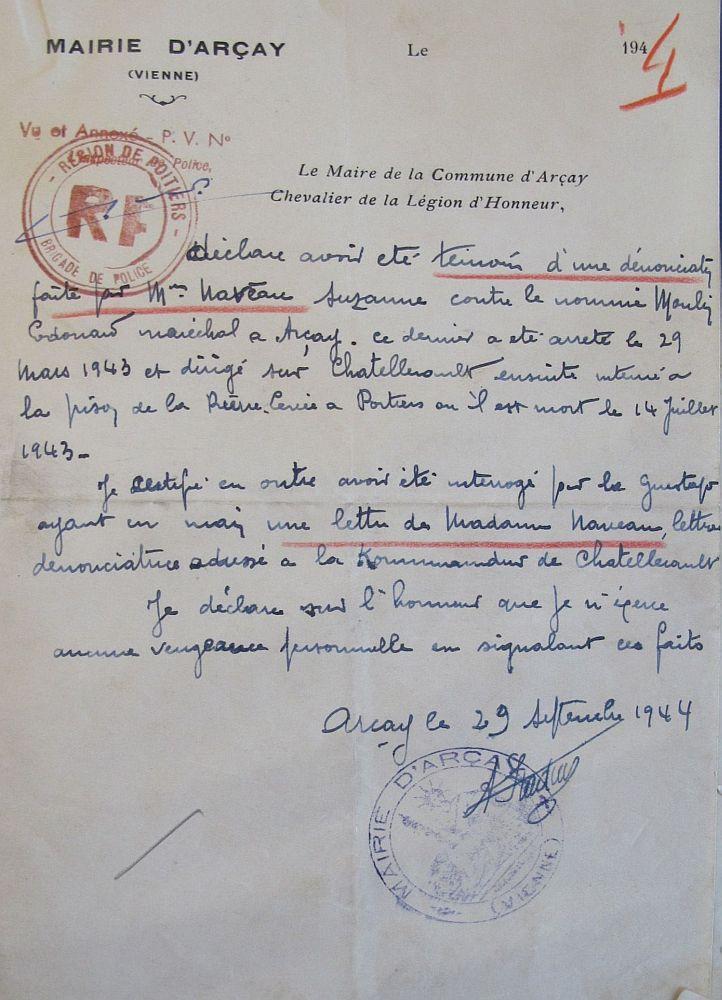 MAIRIE D'ARÇAY
(VIENNE)
Le 194
4
Vu et Annexé - P. V. N°
Inspecteur de Police,
- RÉGION DE POITIERS -
RF
BRIGADE DE POLICE
Le Maire de la Commune d'Arçay
Chevalier de la Légion d'Honneur,
déclare avoir été temoin d'une dénonciation
faite par Mme Naveau Suzanne contre le nommé Moulin
Edouard maréchal a Arçay. ce dernier a été arreté le 29
Mars 1943 et dirigé sur Chatellerault ensuite interné a
la prison de la Pierre Levée a Poitiers ou il est mort le 14 Juillet
1943 -
Je certifie en outre avoir été interrogé par la Guestapo
ayant en main une lettre de Madame Naveau, lettre
denonciatrice adressé a la Kommandur de Chatellerault
Je déclare sur l'honneur que je n'éxerce
aucune vengeance personnelle en signalant ces faits
Arçay le 29 Septembre 1944
MAIRIE D'ARÇAY
(VIENNE)